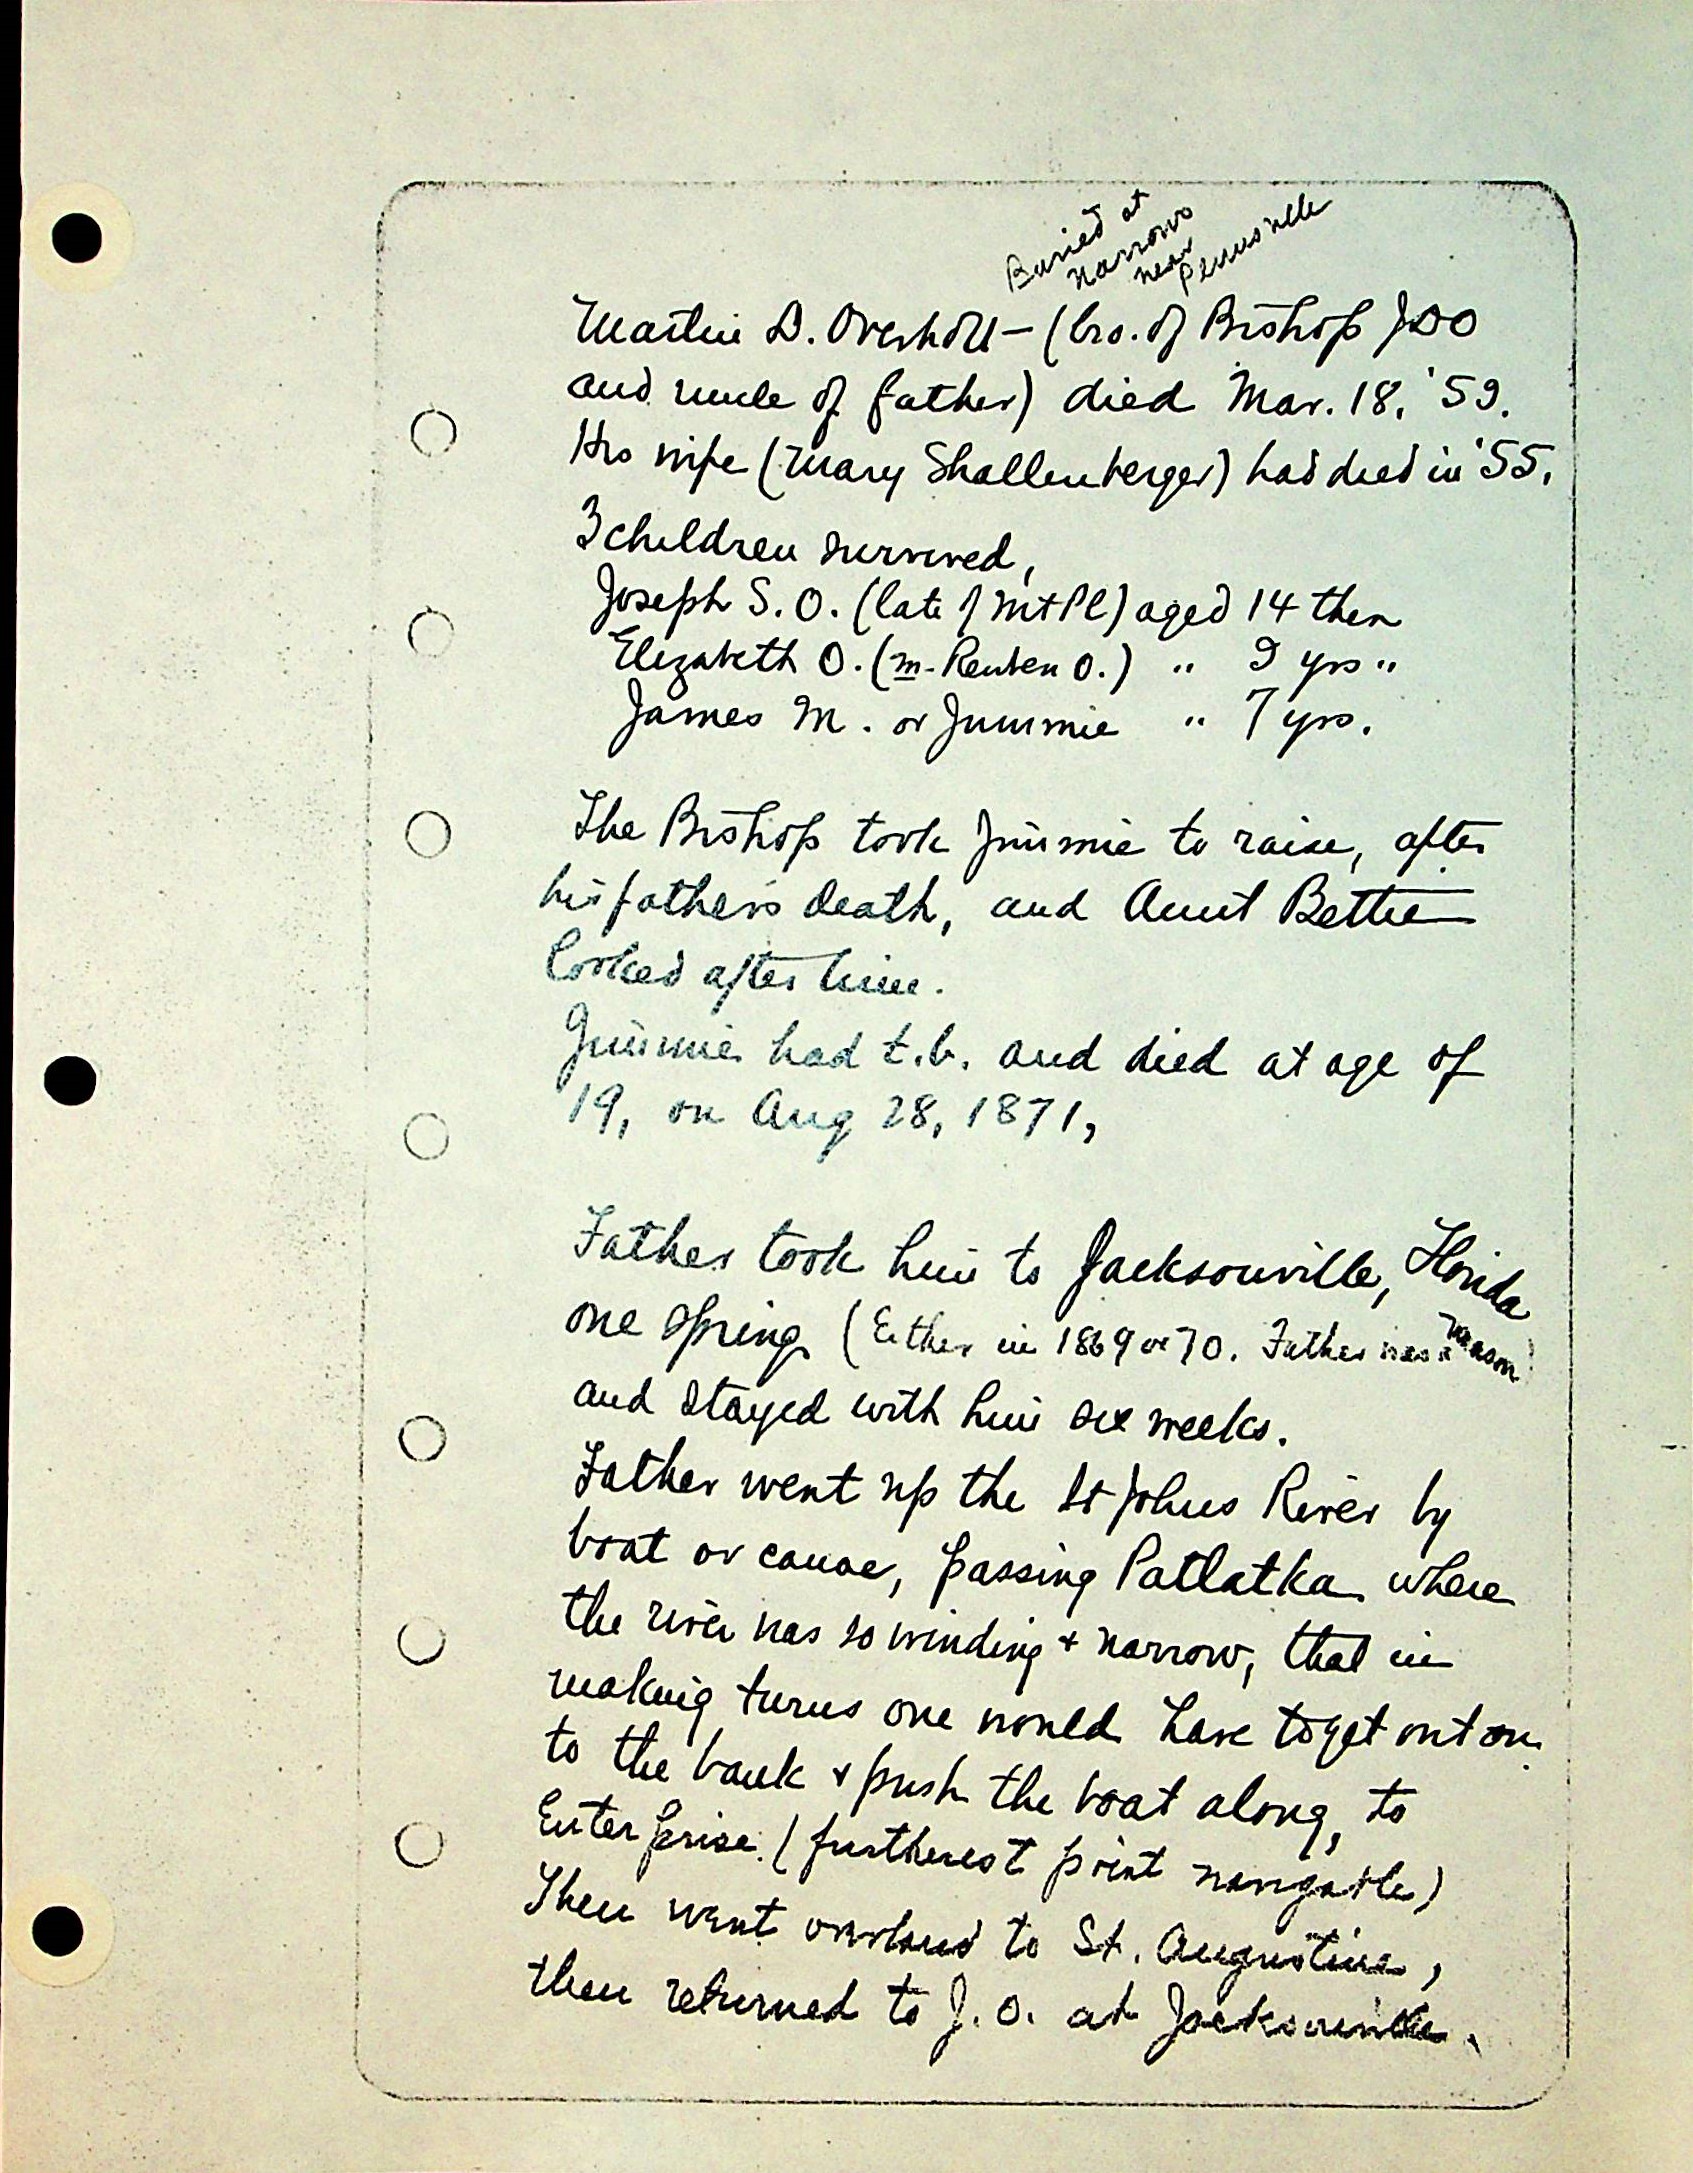 Buried at
Narrows
near
Pennsville
Martin D. Overholt – (bro. of Bishop JDO
and uncle of father) died Mar. 18, '59.
His wife (Mary Shallenberger) had died in '55.
3 children survived,
Joseph S. O. (late of Mt Pl) aged 14 then
Elizabeth O. (m. Reuben O.) " 9 yrs "
James M. or Jimmie " 7 yrs.
The Bishop took Jimmie to raise, after
his father's death, and Aunt Bettie
looked after him.
Jimmie had t.b. and died at age of
19, on Aug 28, 1871,
Father took him to Jacksonville, Florida
one spring (Either in 1869 or 70. Father was a mason)
and stayed with him six weeks.
Father went up the St Johns River by
boat or canoe, passing Patlatka where
the river was so winding + narrow, that in
making turns one would have to get out on
to the bank + push the boat along, to
Enterprise. (furtherest point navigable)
Then went overland to St. Augustine,
then returned to J. O. at Jacksonville.